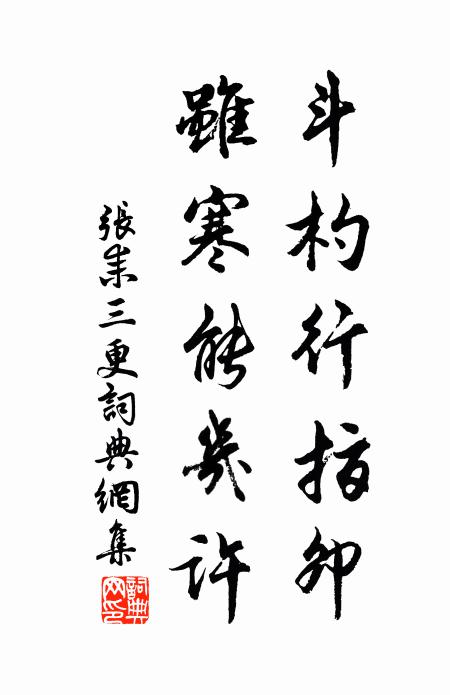 斗杓行指卯
雖寒能幾許
張耒三更詞典網集
詞典网印